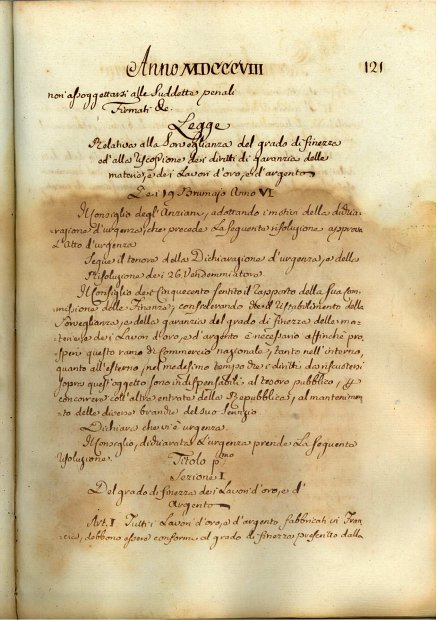 Anno MDCCCVIII 121
non assoggettarsi alle Suddette penali
Firmati &c.
Legge
Relativa alla Sorveglianza del grado di finezza
ed alla riscossione dei diritti di garanzia delle
materie, e dei Lavori d'oro, e d'argento
Dei 19 Brumajo Anno VI
Il Consiglio degli Anziani, adottando i motivi della dichia-
razione d'urgenza, che precede la seguente risoluzione approva
l'Atto d'urgenza
Segue il tenore della Dichiarazione d'urgenza, e della
Risoluzione dei 26 Vendemmiatore
Il Consiglio dei Cinquecento sentito il rapporto della sua Com-
missione delle Finanze, considerando che il ristabilimento della
Sorveglianza, e della garanzia del grado di finezza delle ma-
terie, e dei Lavori d'oro, e d'argento è necessario affinchè pro-
speri questo ramo di Commercio nazionale, tanto nell'interno,
quanto all'esterno, nel medesimo tempo che i diritti da riscuotersi
sopra quest'oggetto sono indispensabili al tesoro pubblico, per
concorrere coll'altre entrate della Repubblica, al mantenimen-
to delle diverse branche del suo Servizio
Dichiara che vi è urgenza.
Il Consiglio, dichiarata l'urgenza prende la seguente
risoluzione.
Titolo p.mo
Sezione I
Del grado di finezza dei Lavori d'oro, e d'
Argento
Art. I Tutti i Lavori d'oro, e d'argento fabbricati in Fran-
cia, debbono essere conformi al grado di finezza prescritto dalla